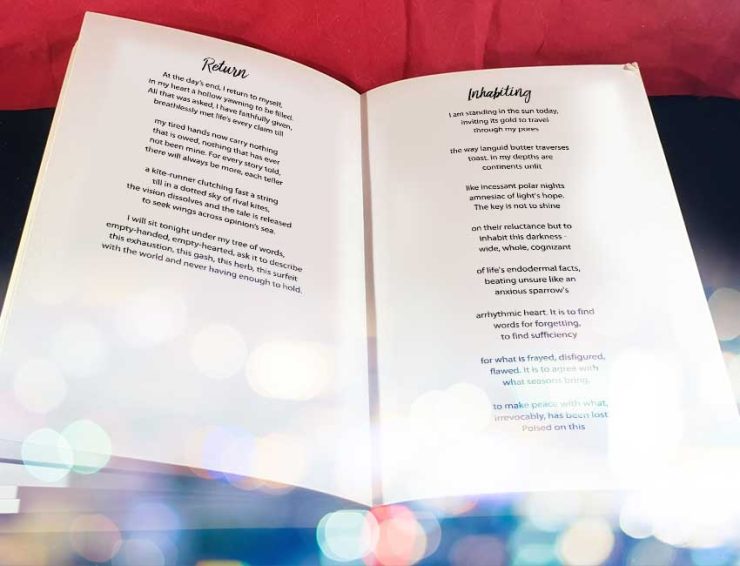 Return
At the day's end, I return to myself,
in my heart a hollow yawning to be filled.
All that was asked, I have faithfully given,
breathlessly met life's every claim till
my tired hands now carry nothing
that is owed, nothing that has ever
not been mine. For every story told,
there will always be more, each teller
a kite-runner clutching fast a string
till in a dotted sky of rival kites,
the vision dissolves and the tale is released
to seek wings across opinion's sea.
I will sit tonight under my tree of words,
empty-handed, empty-hearted, ask it to describe
this exhaustion, this gash, this herb, this surfeit
with the world and never having enough to hold.
Inhabiting
I am standing in the sun today,
inviting its gold to travel
through my pores
the way languid butter traverses
toast. In my depths are
continents unlit
like incessant polar nights
amnesiac of light's hope.
The key is not to shine
on their reluctance but to
inhabit this darkness -
wide, whole, cognizant
of life's endodermal facts,
beating unsure like an
anxious sparrow's
arrhythmic heart. It is to find
words for forgetting,
to find sufficiency
for what is frayed, disfigured,
flawed. It is to agree with
what seasons bring,
to make peace with what,
irrevocably, has been lost
Poised on this